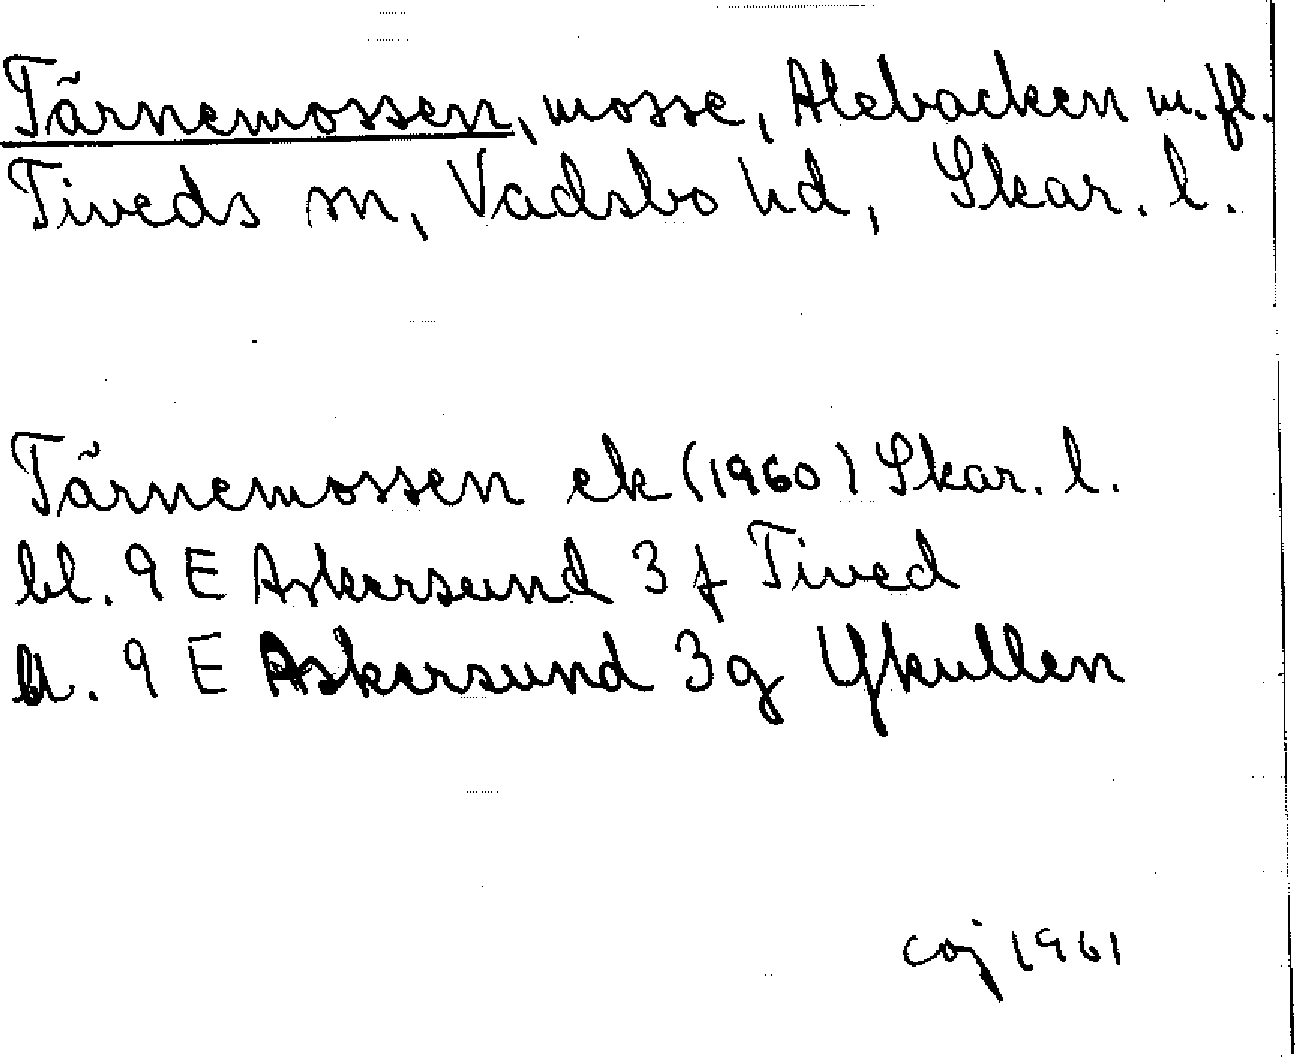 Tärnemossen, mosse, Alebacken m. fl.
Tiveds sn, Vadsbo hd, Skar. l.
Tärnemossen ek (1960) Skar. l.
bl. 9 E Askersund 3 f Tived
bl. 9 E Askersund 3g Ykullen
coj 1961